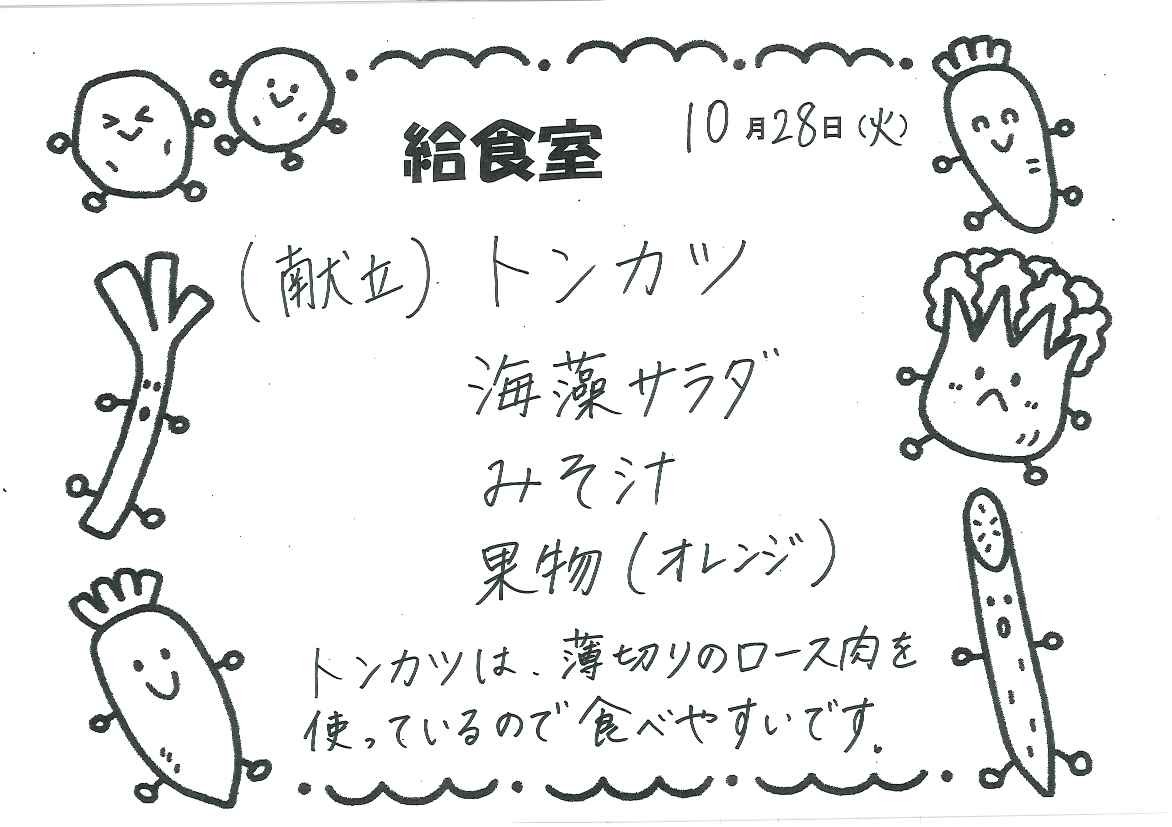 給食室
10月28日(火)
(献立) トンカツ
海藻サラダ
みそ汁
果物(オレンジ)
トンカツは、薄切りのロース肉を
使っているので食べやすいです。